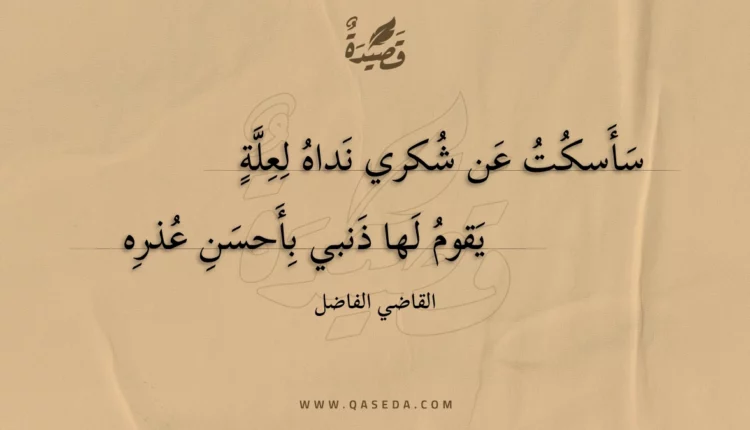 قَصِيدَةٌ
سَأَسكُتُ عَن شُكري نَداهُ لِعِلَّةٍ
يَقومُ لَها ذَنبي بِأَحسَنِ عُذرِهِ
القاضي الفاضل
WWW.QASEDA.COM